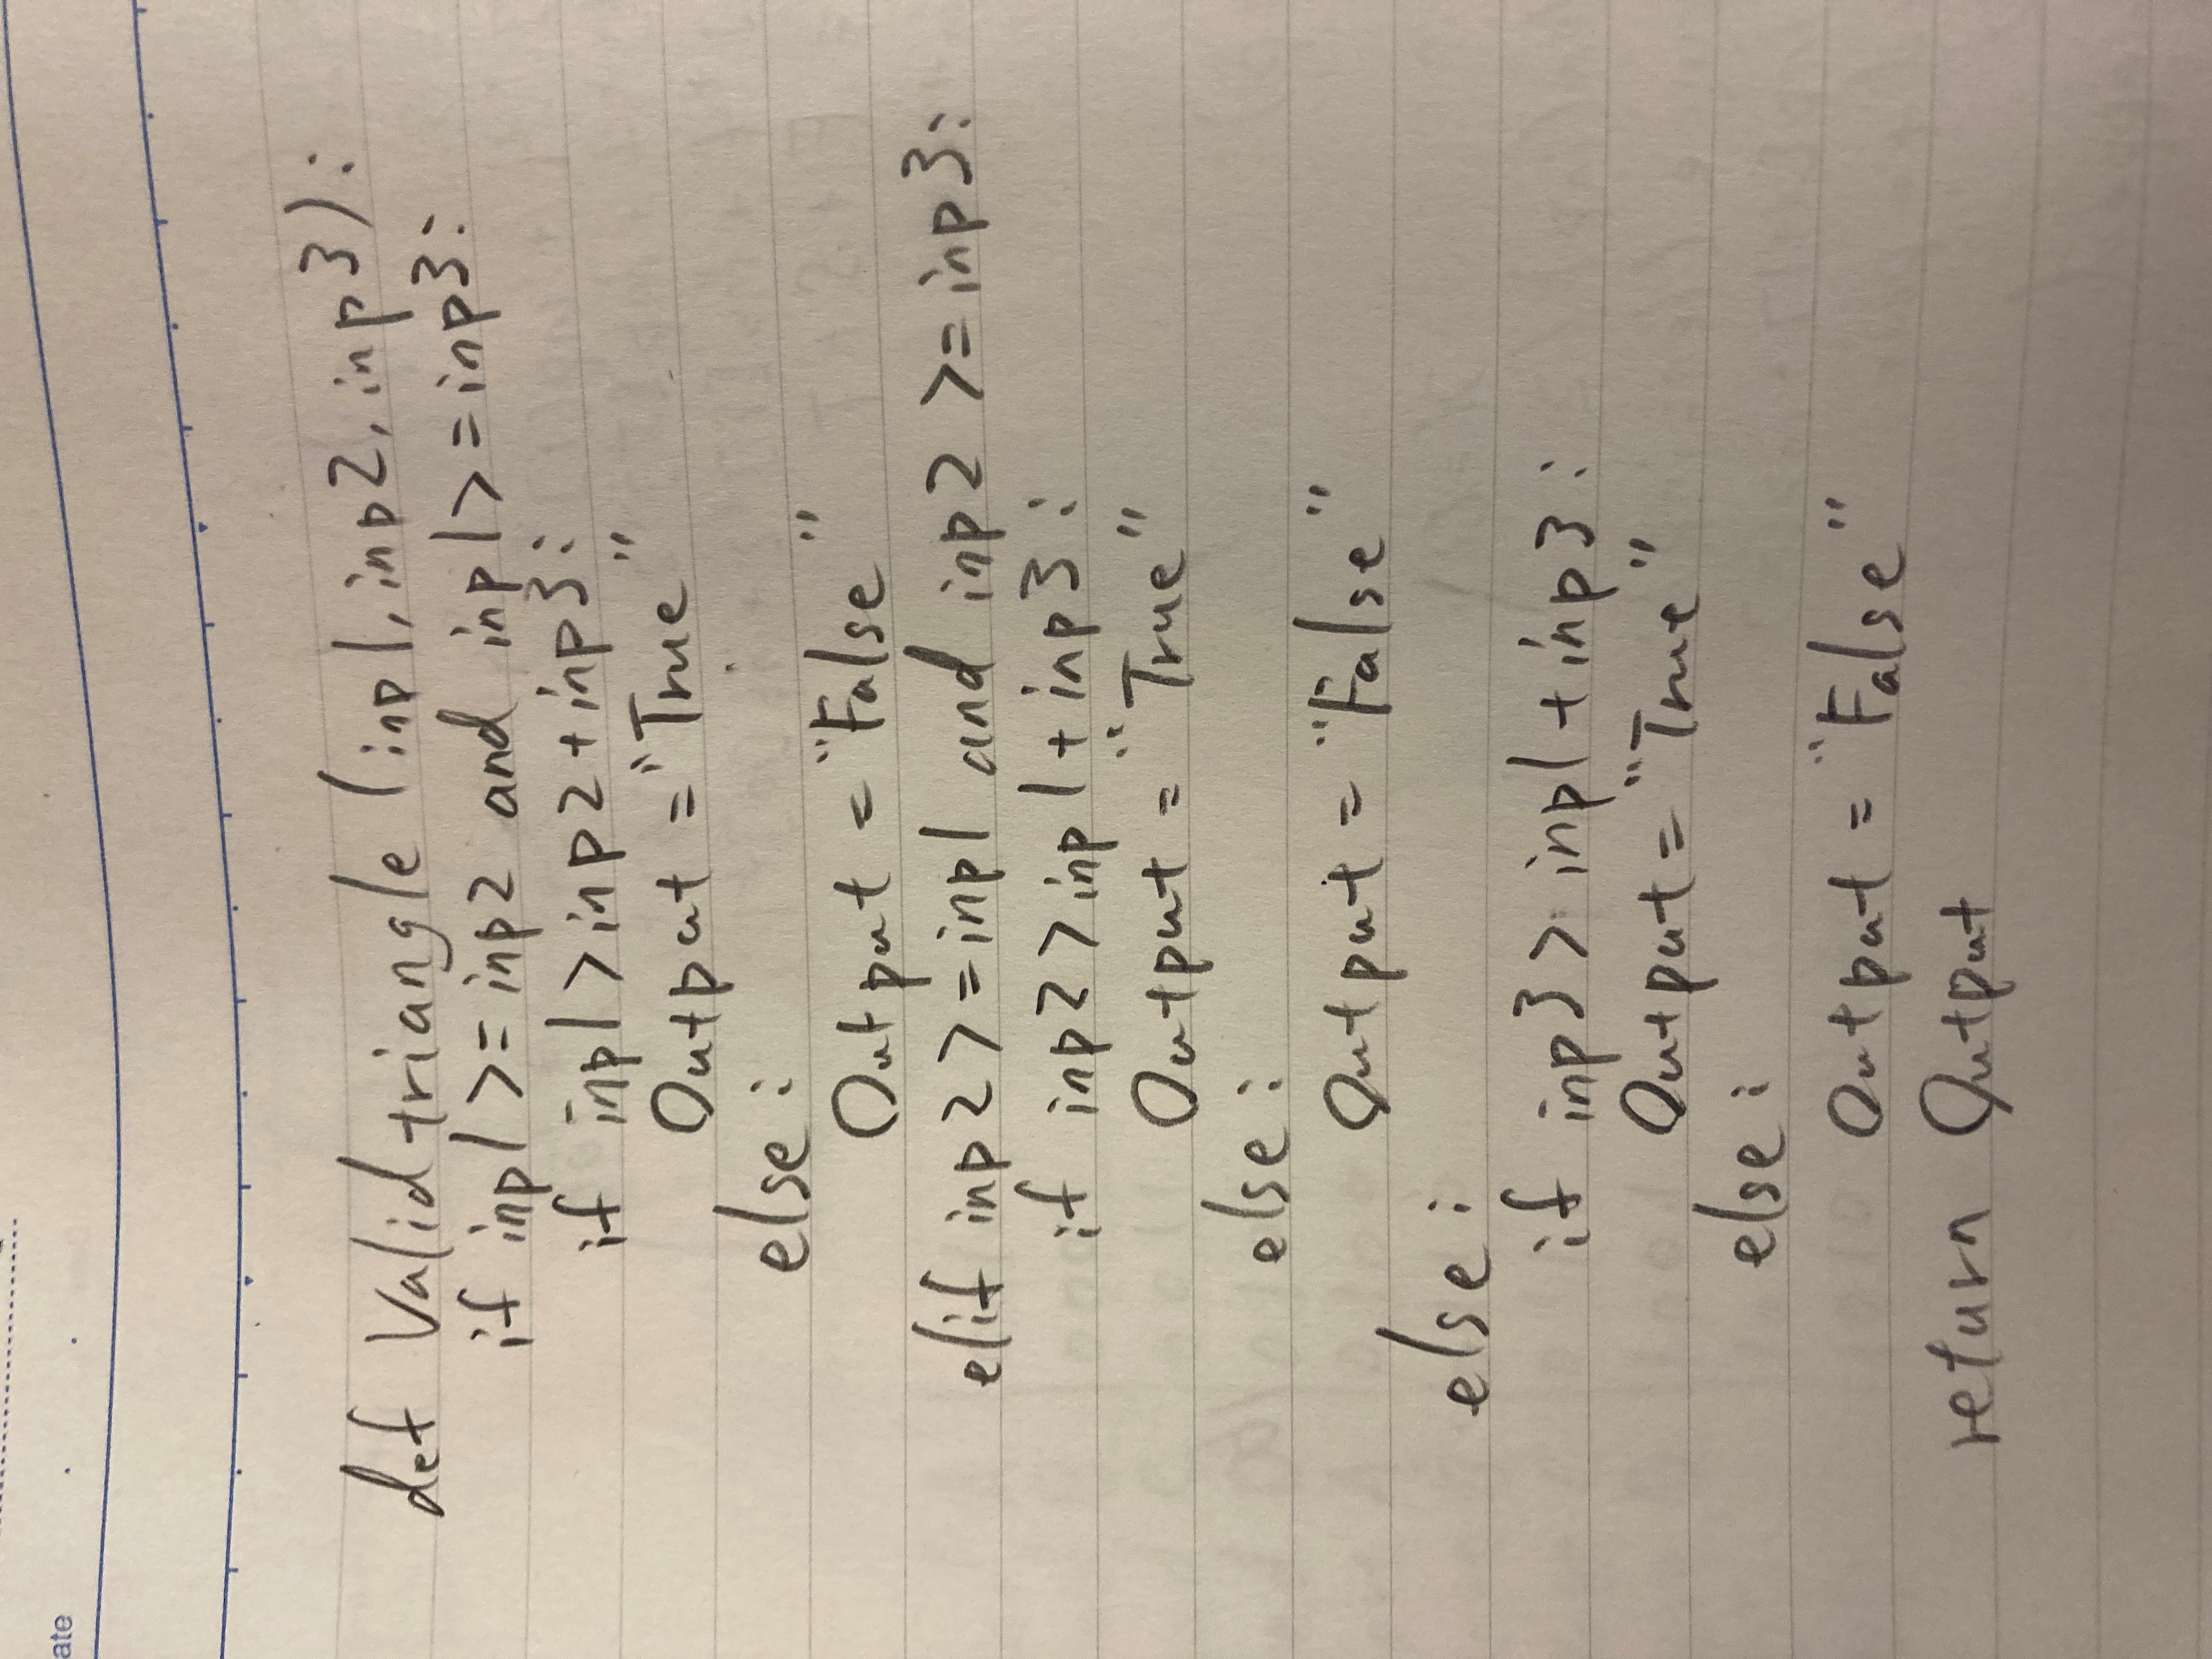 ate
def Validtriangle (inp1, inp2, inp3):
if inp1>=inp2 and inp1>=inp3:
if inp1>inp2+inp3:
Output="True"
else:
Output = "False"
elif inp2>=inp1 and inp2>=inp3:
if inp2>inp1+inp3:
Output="True"
else:
Output = "False"
else:
if inp3>inp1+inp3:
Output="True"
else:
Output = "False"
return Output